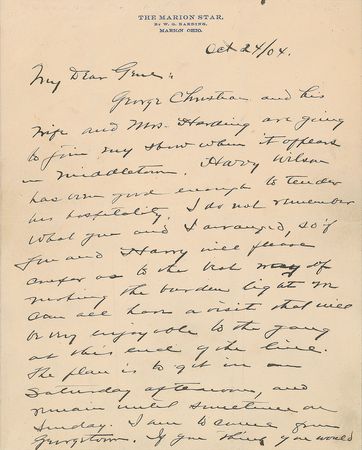 THE MARION STAR.
BY W. G. HARDING,
MARION OHIO.
Oct 24/04.
My Dear Gene:
George Christian and his
wife and Mrs. Harding are going
to join my show when it appears
in Middletown. Harry Wilson
has been good enough to tender
his hospitality. I do not remember
what you and I arranged, so if
you and Harry will please
confer as to the best way of
making the burden light we
can all have a visit that will
be very enjoyable to the gang
at this end of the line.
The plan is to get in on
Saturday afternoon, and
remain until sometime on
Sunday. I am to come from
Georgetown. If you think you would